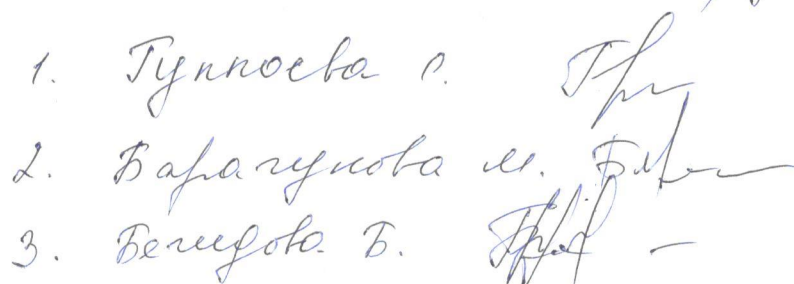 1. Гуппоева С.
2. Барагунова М.
3. Бегидова Б.